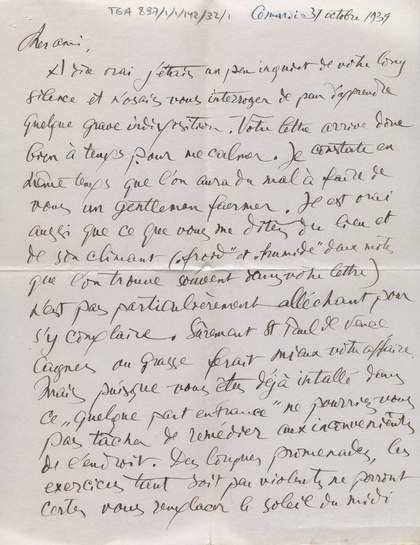 TGA 897/1/1/142/32/1
Ce mardi - 31 octobre 1939
Cher ami,
A dire vrai j'étais un peu inquiet de votre long
silence et n'osais vous interroger de peur d'apprendre
quelque grave indisposition. Votre lettre arrive donc
bien à temps pour me calmer. Je constate en
même temps que l'on aura du mal à faire de
vous un gentleman farmer. Il est vrai
aussi que ce que vous me dites du lieu et
de son climat ("froid" et "humide" deux mots
que l'on trouve souvent dans votre lettre)
n'est pas particulièrement alléchant pour
s'y complaire. Sûrement St Paul de Vence
Cagnes ou Grasse ferait mieux votre affaire.
Mais puisque vous êtes déjà intallé dans
ce "quelque part en france" ne pourriez-vous
pas tacher de remédier aux inconvenients
de l'endroit. Des longues promenades, les
exercices tant soit peu violents ne pourront
certes vous remplacer le soleil du midi